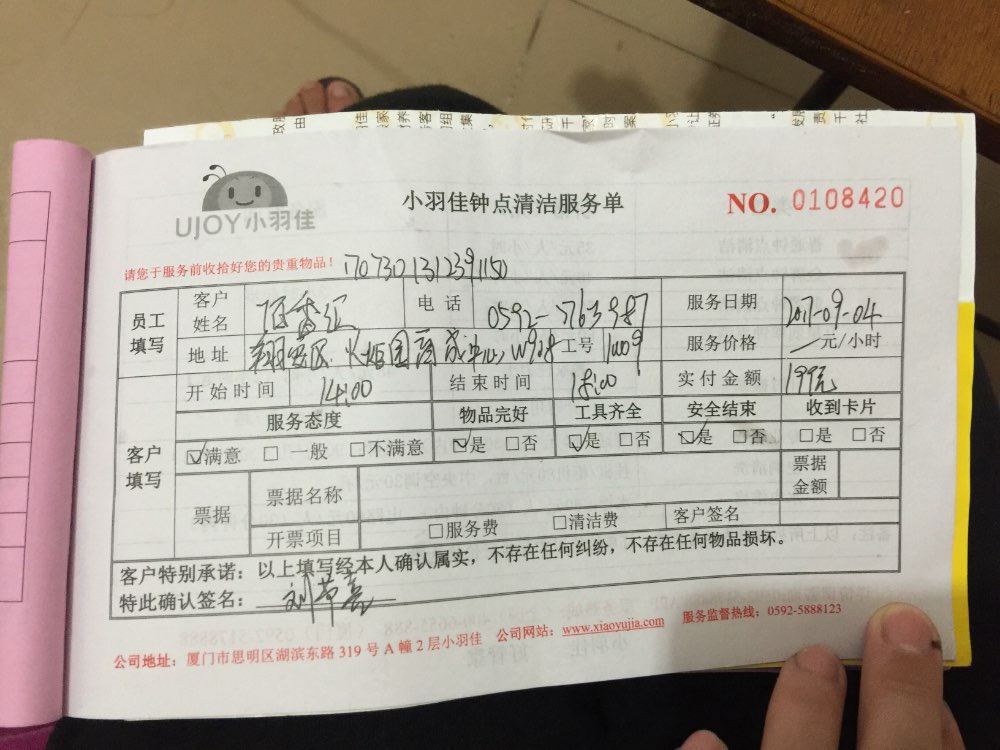 UJOY小羽佳
小羽佳钟点清洁服务单
NO. 0108420
请您于服务前收拾好您的贵重物品！
员工填写 客户姓名 电话 0592-5763987 服务日期 2017-09-04
地址 翔安区 火炬园 W908 工号 服务价格 元/小时
开始时间 14:00 结束时间 18:00 实付金额 199元
客户填写 服务态度 物品完好 工具齐全 安全结束 收到卡片
☑满意 □ 一般 □不满意 ☑是 □否 ☑是 □否 ☑是 □否 □是 □否
票据 票据名称 票据金额
开票项目 □服务费 □清洁费 客户签名
客户特别承诺：以上填写经本人确认属实，不存在任何纠纷，不存在任何物品损坏。
特此确认签名：
公司地址：厦门市思明区湖滨东路 319 号 A 幢 2 层小羽佳 公司网站：www.xiaoyujia.com 服务监督热线：0592-5888123